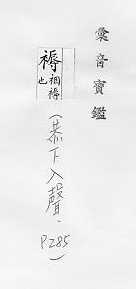 彙音寶鑑
褥
裀褥也
(恭下入聲.
P285)